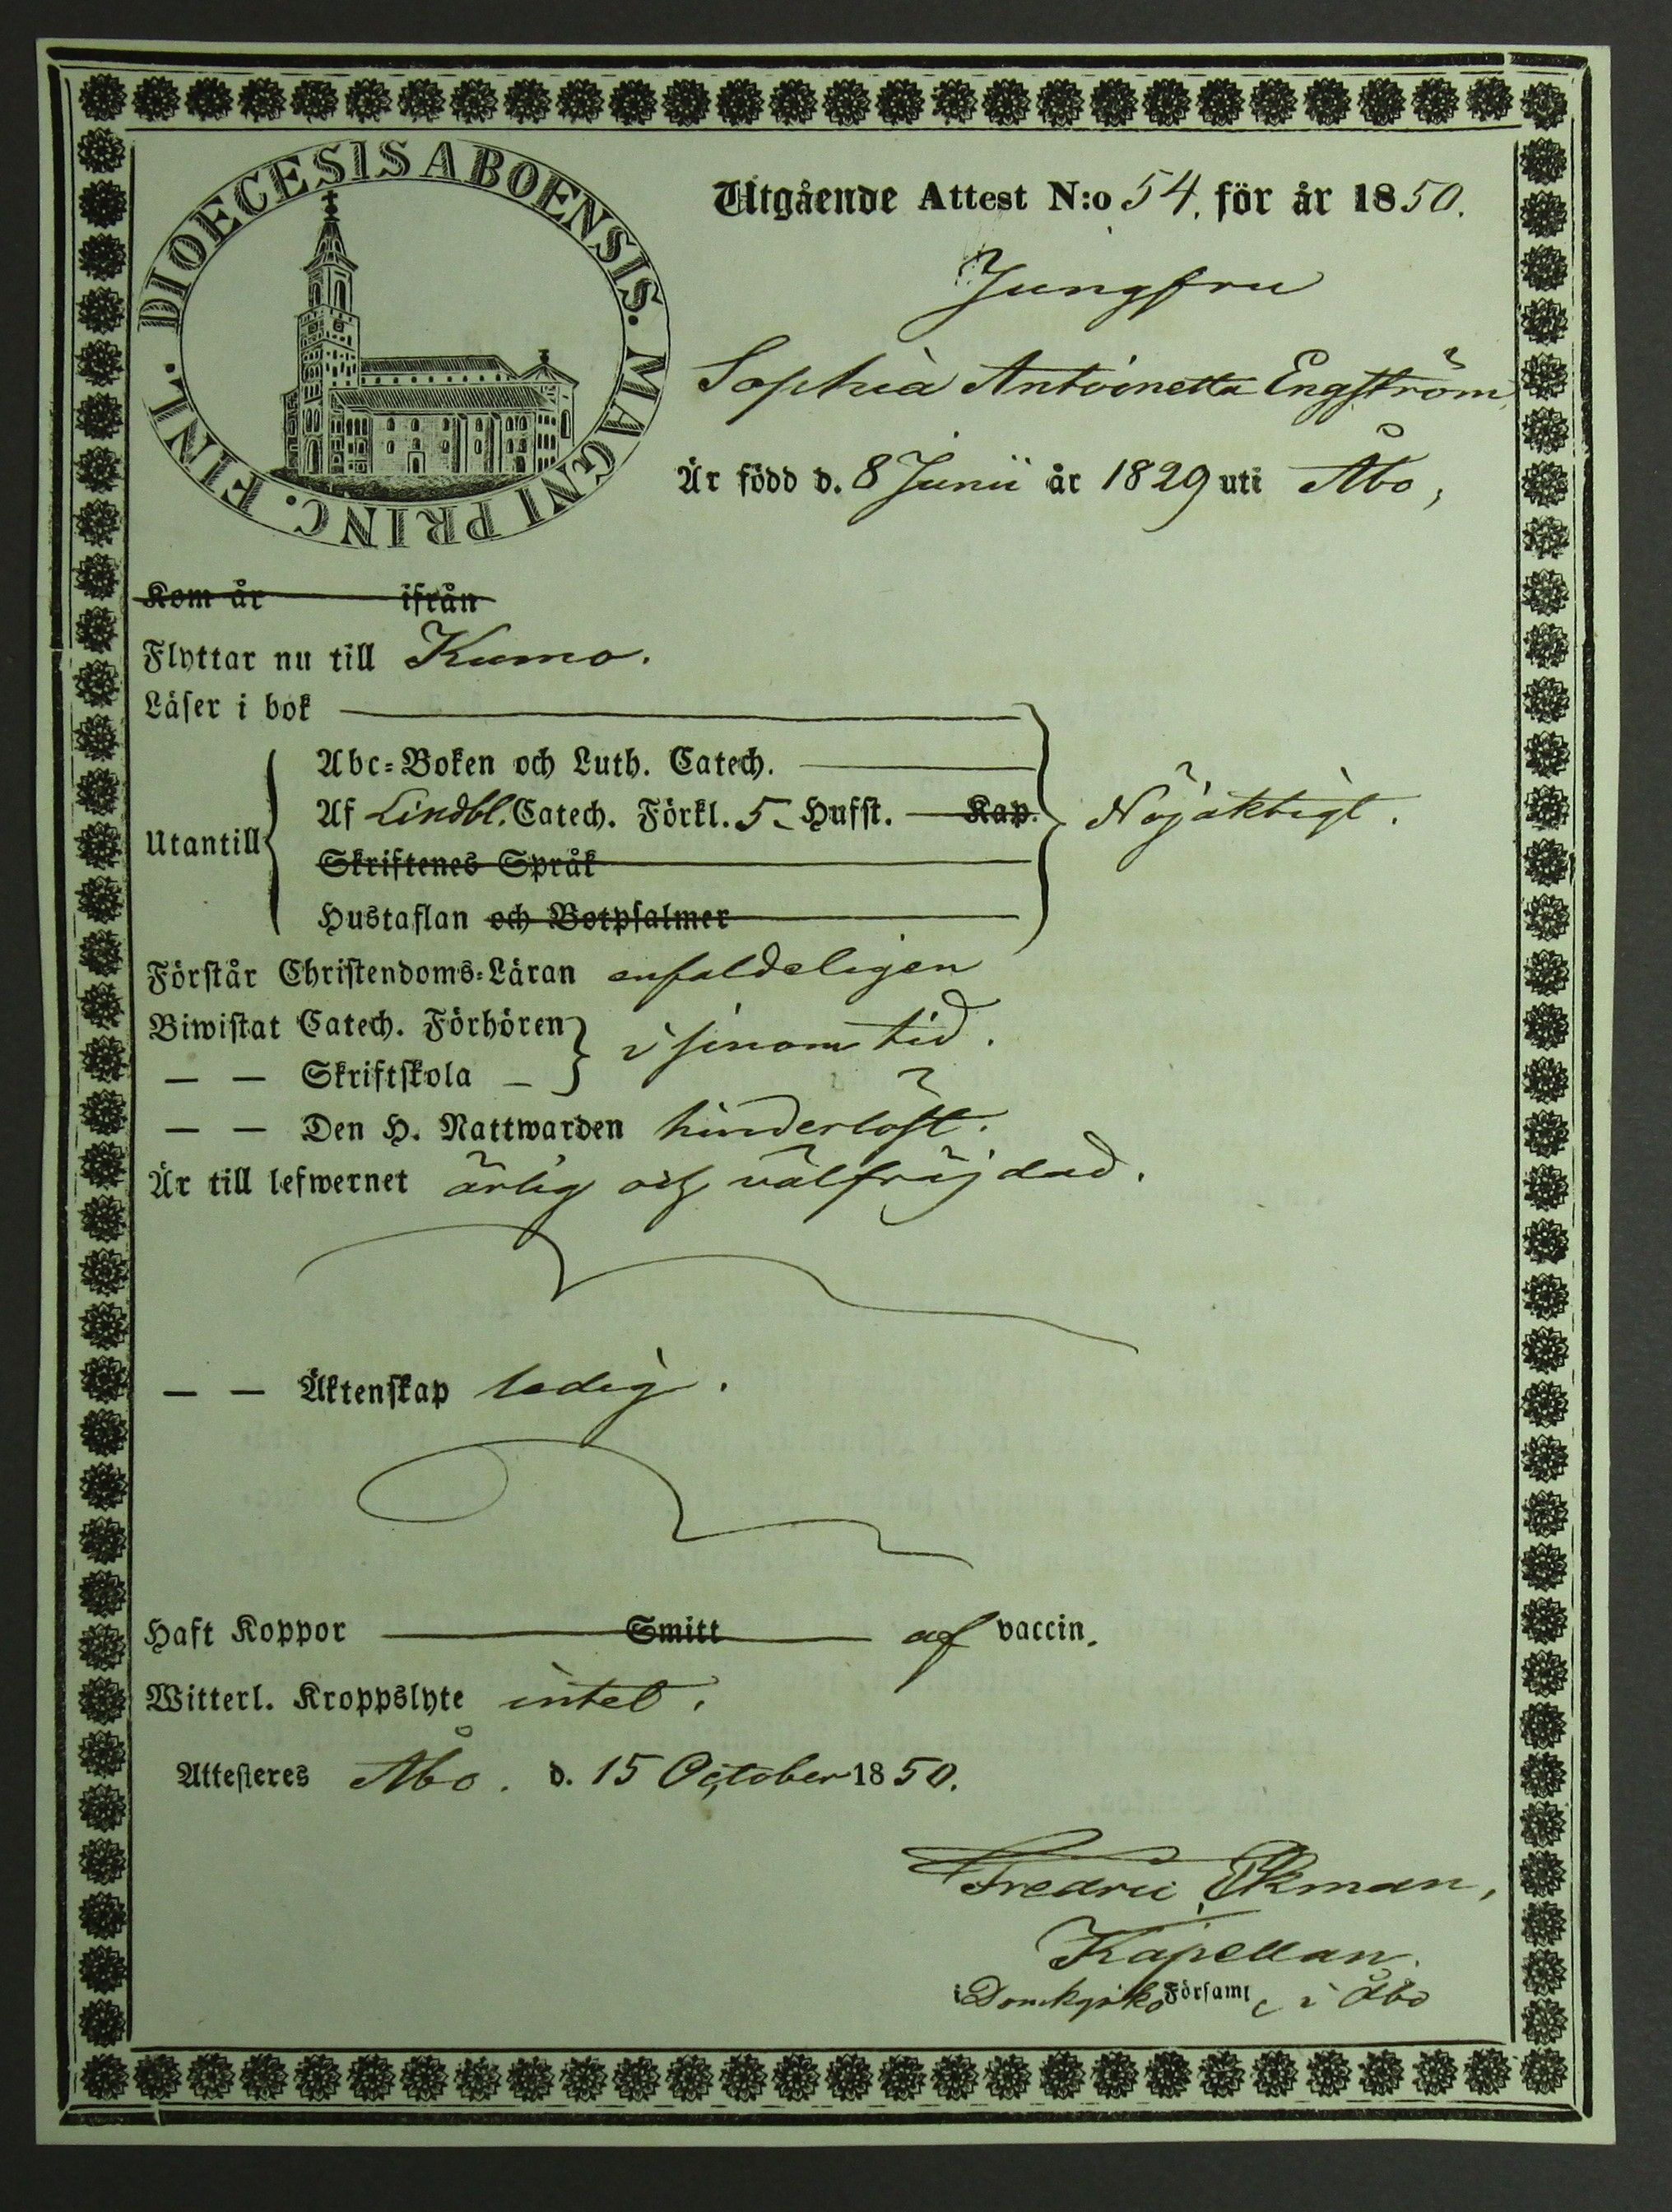 DIOECESIS ABOENSIS. MAGNI PRINC. FINL.
Utgående Attest N:o 54. för år 1850.
Jungfru
Sophia Antoinetta Engström
Är född d. 8 Junii år 1829 uti Åbo,
Kom år ifrån
Flyttar nu till Kumo.
Läser i bok
Abc-Boken och Luth. Catech.
Utantill Af Lindbl. Catech. Förkl. 5 Hufst. Kap. Nöjaktigt.
Skriftenes Språk
Hustaflan och Botpsalmer
Förstår Christendoms-Läran enfaldeligen
Biwistat Catech. Förhören i sinom tid.
— — Skriftskola —
— — Den H. Nattwarden hinderlöst.
Är till lefwernet ärlig och välfräjdad.
— — Äktenskap ledig.
Haft Koppor Smitt af vaccin.
Witterl. Kroppslyte intet.
Attesteres Åbo. d. 15 October 1850.
Fredric Ekman,
Kapellan
i Domkyrko Församl i Åbo